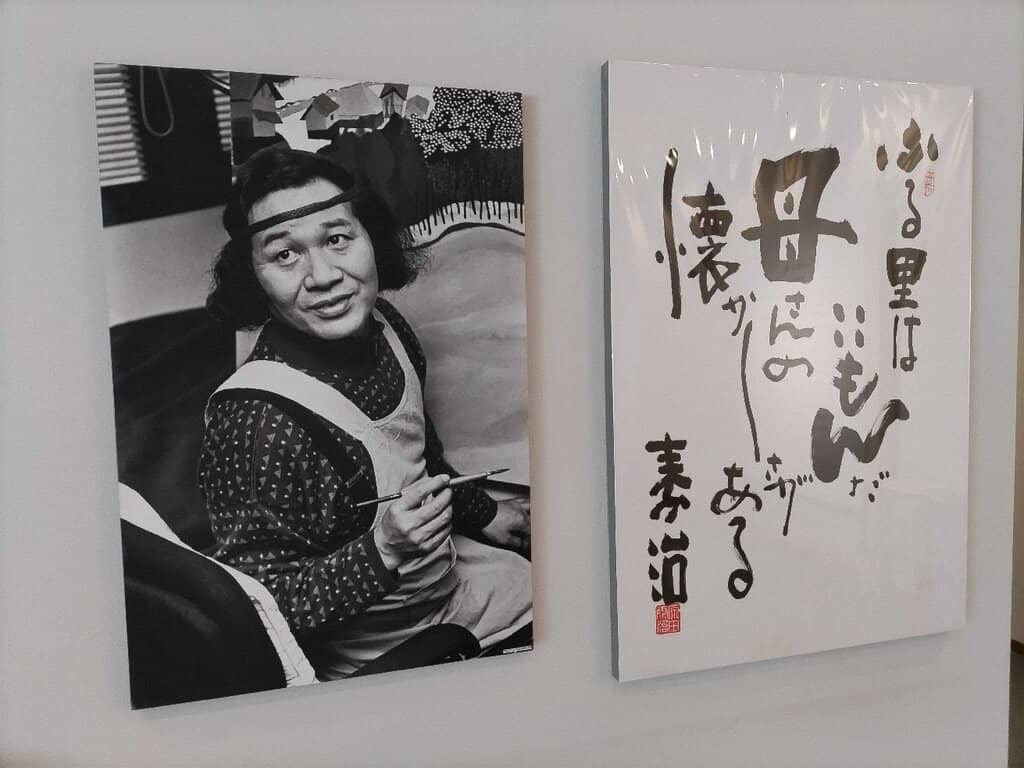 ふる里は
いいもんだ
母さんの
懐かしさが
ある
泰治